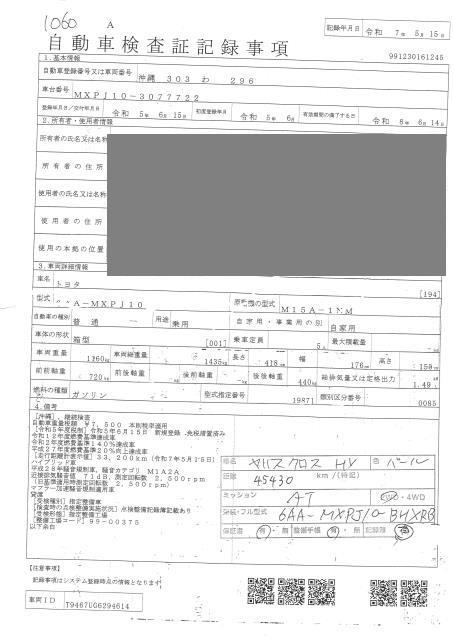 1060 A
記録年月日 令和 7年 5月15日
自動車検査証記録事項
991230161245
1.基本情報
自動車登録番号又は車両番号 沖縄 303 わ 296
車台番号 MXPJ10-3077722
登録年月日/交付年月日 令和 5年 6月15日 初度登録年月 令和 5年 6月 有効期間の満了する日 令和 8年 6月14日
2.所有者・使用者情報
所有者の氏名又は名称
所有者の住所
使用者の氏名又は名称
使用者の住所
使用の本拠の位置
3.車両詳細情報
車名 トヨタ [194]
型式 A-MXPJ10 原動機の型式 M15A-1 M
自動車の種別 普通 用途 乗用 自家用・事業用の別 自家用
車体の形状 箱型 [001] 乗車定員 5人 最大積載量
車両重量 1160kg 車両総重量 1435kg 長さ 418cm 幅 176cm 高さ 159cm
前前軸重 720kg 前後軸重 後前軸重 後後軸重 440kg 総排気量又は定格出力 1.49L
燃料の種類 ガソリン 型式指定番号 19871 類別区分番号 0085
4.備考
[沖縄],継続検査
自動車重量税額 ¥7,500 本則税率適用
[令和5年税制]令和5年6月15日 新規登録 免税措置済み
令和12年度燃費基準達成車
令和2年度燃費基準140%達成車
平成27年度燃費基準20%向上達成車
[走行距離計表示値]33,200km(令和7年5月15日)
ハイブリッド車
平成28年騒音規制車,騒音カテゴリ M1A2A
近接排気騒音値 71dB,測定回転数 2,500rpm
[旧基準適用時測定回転数 2,500rpm]
マフラー加速騒音規制適用車
貸渡
[受検種別]指定整備車
[検査時の点検整備実施状況]点検整備記録簿記載あり
[受検形態]指定整備工場
[整備工場コード]99-00375
以下余白
車名 ヤリスクロス HV 色 パール
距離 45430 km/(特記)
ミッション AT 2WD・4WD
型・フル型式 6AA-MXPJ10-BHXRB
保証書 有・無 整備手帳 有・無 記録簿
【注意事項】
記録事項はシステム登録時点の情報となります
車両ID T9467UG6294614